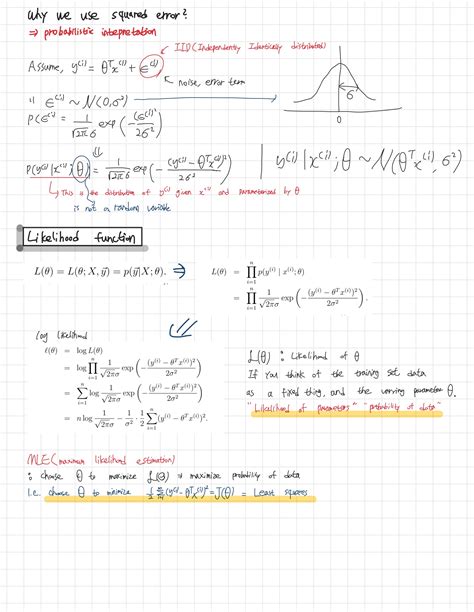 Why we use squared error?
⇒ probabilistic interpretation
IID (Independently Identically distributed)
Assume, y^(i) = θ^T x^(i) + ε^(i)
noise, error term
ε^(i) ~ N(0, σ²)
σ
0
P(ε^(i)) = 1/(√2π σ) exp(-(ε^(i))²/2σ²)
P(y^(i)|x^(i); θ) = 1/(√2π σ) exp(-(y^(i) - θ^T x^(i))²/2σ²)
y^(i) | x^(i); θ ~ N(θ^T x^(i), σ²)
This is the distribution of y^(i) given x^(i) and parameterized by θ
is not a random variable
Likelihood function
L(θ) = L(θ; X, y⃗) = p(y⃗|X; θ). ⇒
L(θ) = ∏_{i=1}^{n} p(y^(i) | x^(i); θ)
= ∏_{i=1}^{n} 1/(√2πσ) exp(-(y^(i) - θ^T x^(i))²/2σ²).
log likelihood
ℓ(θ) = log L(θ)
= log ∏_{i=1}^{n} 1/(√2πσ) exp(-(y^(i) - θ^T x^(i))²/2σ²)
= ∑_{i=1}^{n} log 1/(√2πσ) exp(-(y^(i) - θ^T x^(i))²/2σ²)
= n log 1/(√2πσ) - 1/σ² · 1/2 ∑_{i=1}^{n} (y^(i) - θ^T x^(i))².
L(θ) : Likelihood of θ
If you think of the training set data
as a fixed thing, and the varying parameter θ.
"Likelihood of parameters" "probability of data"
MLE (maximum likelihood estimation)
: choose θ to maximize L(θ) ⇒ maximize probability of data
i.e., choose θ to minimize 1/2 ∑ (y^(i) - θ^T x^(i))² = J(θ) = Least squares